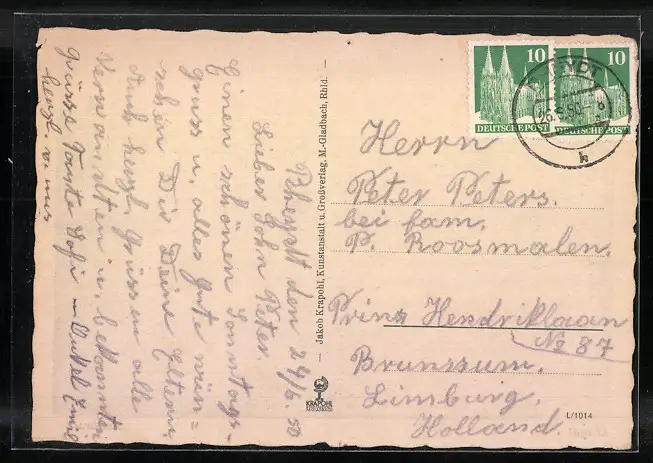 Rheydt den 24/6. 50
Lieber Sohn Peter
Einen schönen Sonntags-
gruss u. alles Gute wün=
schen Dir Deine Eltern.
Auch herzl. Grüsse an alle
Verwandten u. bekannten
Grüsse Tante Sofi – Onkel Emil
herzl. v. uns
Jakob Krapohl, Kunstanstalt u. Großverlag, M.-Gladbach, Rhld.
KRAPOHL
10
DEUTSCHE POST
10
DEUTSCHE POST
RHEYDT
k
Herrn
Peter Peters.
bei fam.
P. Roosmalen.
Prins Hendriklaan
No 87
Brunssum.
Limburg.
Holland.
L/1014